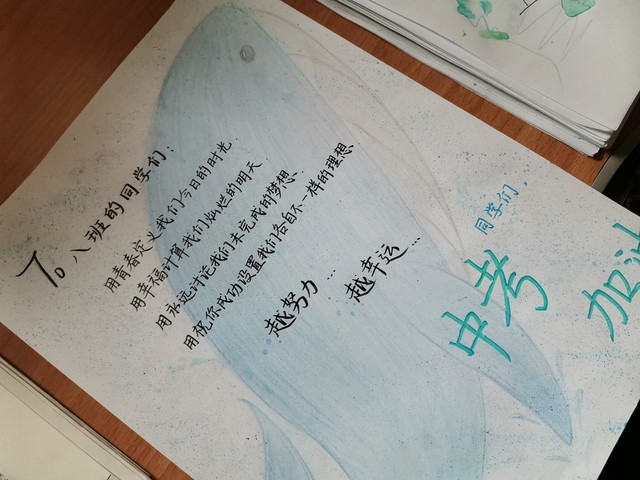 To 八班的同学们：
用青春定义我们今日的时光
用幸福计算我们灿烂的明天
用永远讨论我们未完成的梦想
用祝你成功设置我们各自不一样的理想
越努力…
越幸运…
同学们，
中考
加油